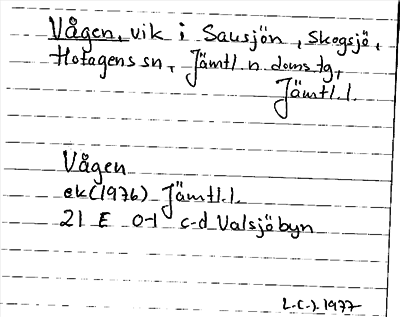 Vågen, vik i Sausjön, Skogsjö,
Hotagens sn, Jämtl. n. doms.tg,
Jämtl. l.
Vågen
ek (1976) Jämtl. l.
21 E 0-1 c-d Valsjöbyn
L.C.J. 1977